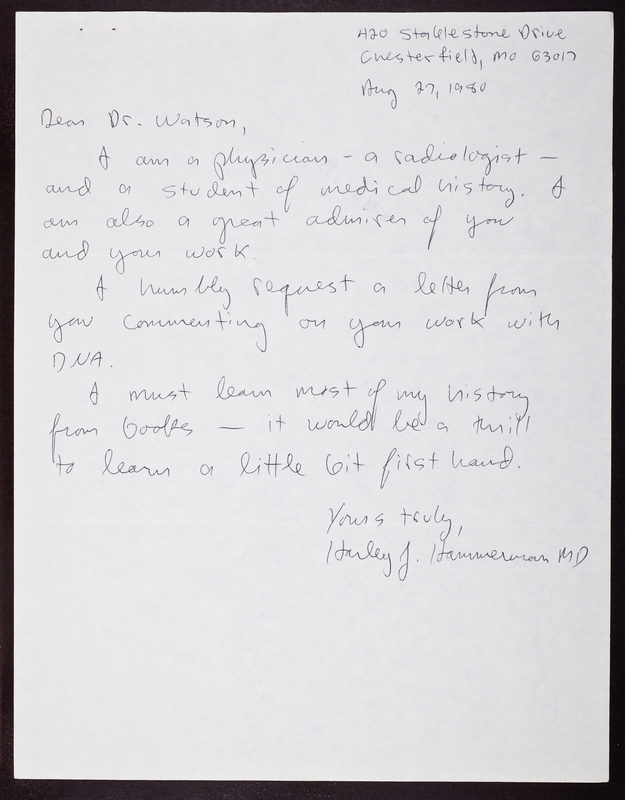 420 Stablestone Drive
Chesterfield, MO 63017
Aug 27, 1980
Dear Dr. Watson,
I am a physician - a radiologist -
and a student of medical history. I
am also a great admirer of you
and your work.
I humbly request a letter from
you commenting on your work with
DNA.
I must learn most of my history
from books - it would be a thrill
to learn a little bit first hand.
Yours truly,
Harley J. Hammerman MD